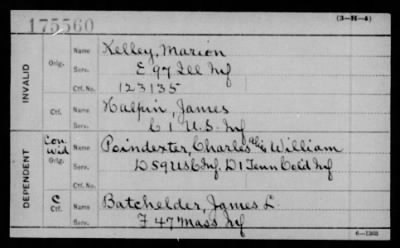 175560
(3—H—4)
INVALID
Orig.
Name Kelley, Marion
Serv. E 97 Ill Inf
Ctf. No. 123135
Ctf.
Name Halpin, James
Serv. C 1 U.S. Inf
DEPENDENT
Con Wid Orig.
Name Poindexter, Charles alias William
Serv. D 59 U S C Inf. D 1 Tenn Cold Inf
C Ctf.
Name Batchelder, James L.
Serv. F 47 Mass Inf
6—1303